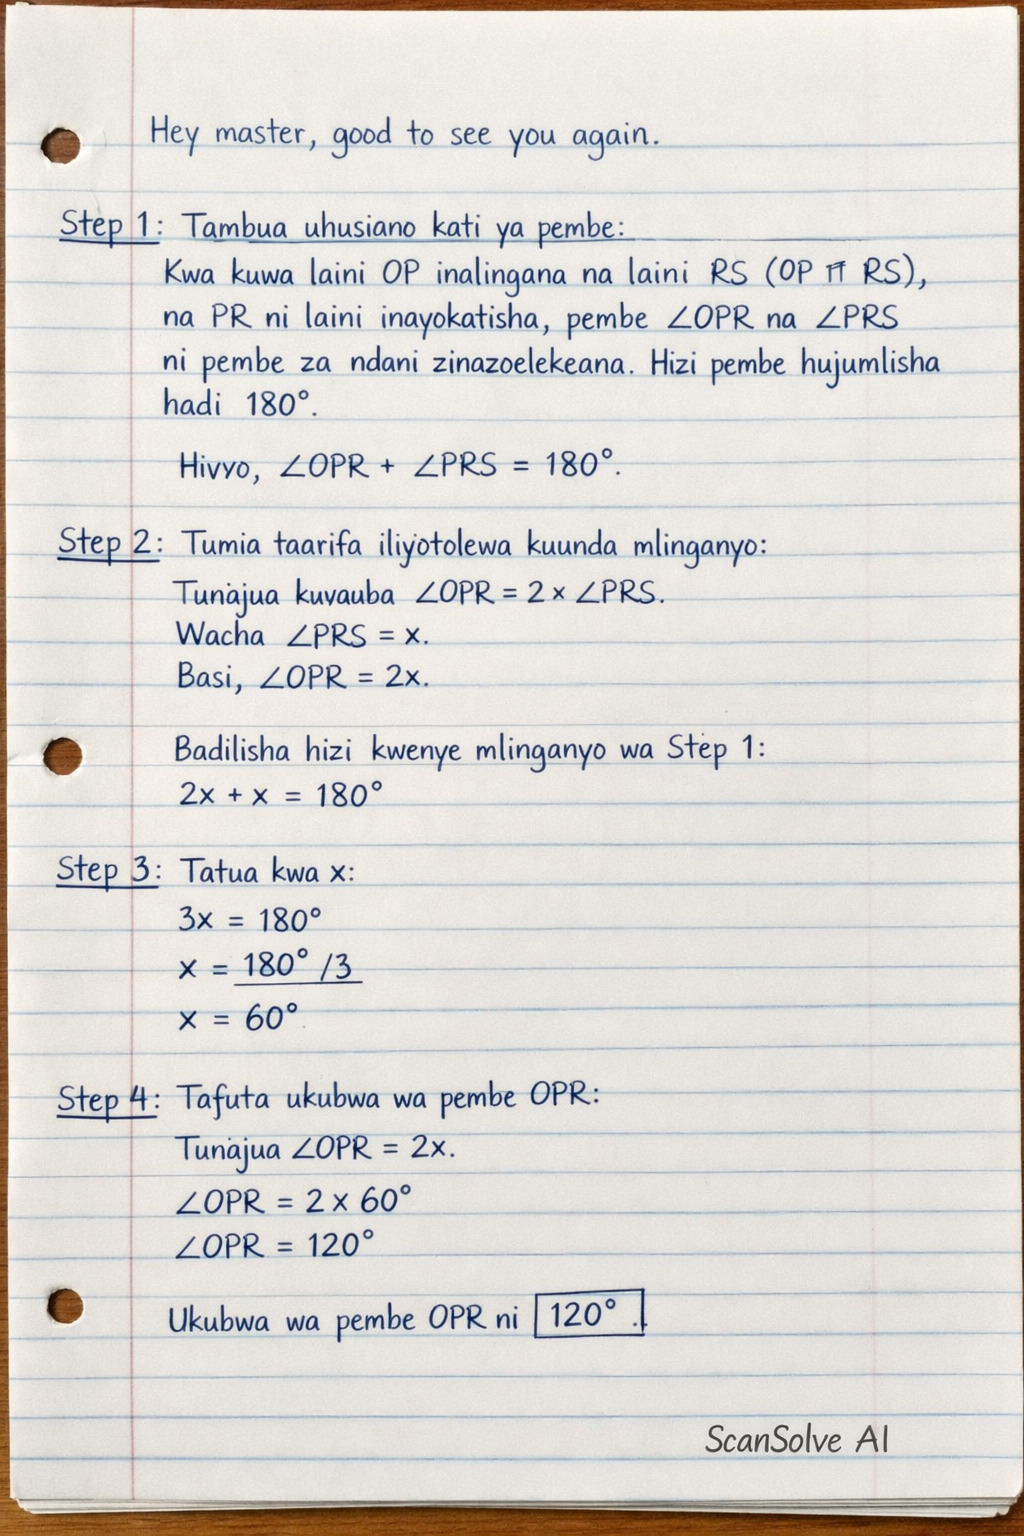 Hey master, good to see you again.
Step 1: Tambua uhusiano kati ya pembe:
Kwa kuwa laini OP inalingana na laini RS (OP ⇈ RS),
na PR ni laini inayokatisha, pembe ∠OPR na ∠PRS
ni pembe za ndani zinazoelekeana. Hizi pembe hujumlisha
hadi 180°.
Hivyo, ∠OPR + ∠PRS = 180°.
Step 2: Tumia taarifa iliyotolewa kuunda mlinganyo:
Tunajua kuvauba ∠OPR = 2 × ∠PRS.
Wacha ∠PRS = x.
Basi, ∠OPR = 2x.
Badilisha hizi kwenye mlinganyo wa Step 1:
2x + x = 180°
Step 3: Tatua kwa x:
3x = 180°
x = 180° /3
x = 60°
Step 4: Tafuta ukubwa wa pembe OPR:
Tunajua ∠OPR = 2x.
∠OPR = 2 x 60°
∠OPR = 120°
Ukubwa wa pembe OPR ni 120° .
ScanSolve AI